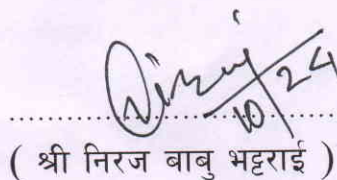 10/24
( श्री निरज बाबु भट्टराई )